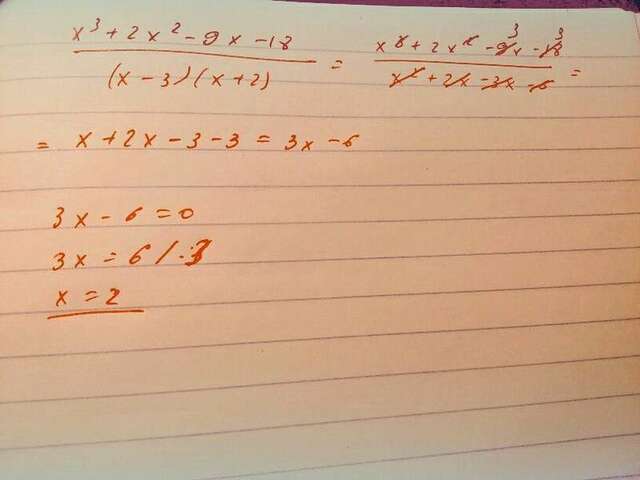 x³ + 2x² - 9x - 18 / (x - 3)(x + 2) = x³ + 2x² - 9x - 18 / x² + 2x - 3x - 6 =
= x + 2x - 3 - 3 = 3x - 6
3x - 6 = 0
3x = 6 / :3
x = 2